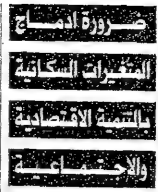 ضرورة ادماج
المتغيرات السكانية
بالتنمية الاقتصادية
والاجتماعية